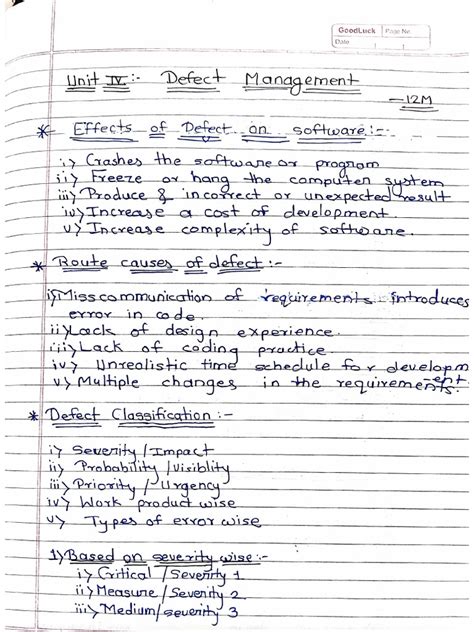 GoodLuck Page No.
Date
Unit IV :- Defect Management
—12M
* Effects of Defect on software :-
i) Crashes the software or program
ii) Freeze or hang the computer system
iii) Produce & incorrect or unexpected result
iv) Increase a cost of development.
v) Increase complexity of software.
* Route causes of defect :-
i) Misscommunication of requirements introduces
error in code.
ii) Lack of design experience.
iii) Lack of coding practice.
iv) Unrealistic time schedule for developm
ent.
v) Multiple changes in the requirements.
* Defect Classification :-
i) Severity / Impact
ii) Probability / Visiblity
iii) Priority / Urgency
iv) Work product wise
v) Types of error wise
1) Based on severity wise :-
i) Critical / Severity 1
ii) Measure / Severity 2
iii) Medium / severity 3